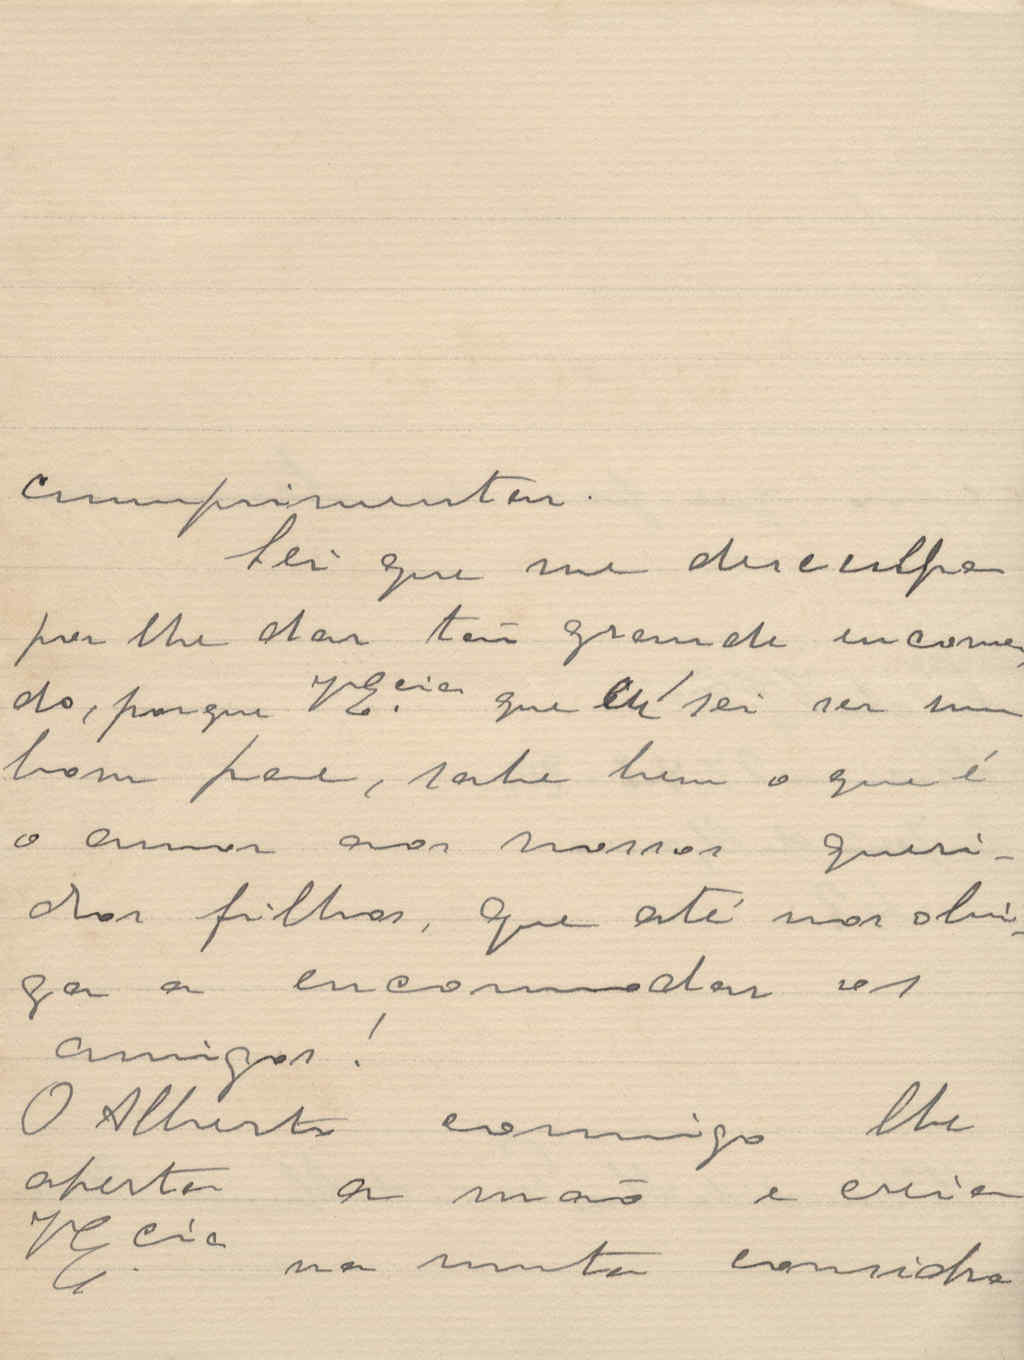 cumprimentar.
Sei que me desculpa
por lhe dar tão grande encomo
do, porque V Ex.cia que eu sei ser um
bom pae, sabe bem o que é
o amor aos nossos queri-
dos filhos, que até nos obri-
ga a encommodar os
amigos!
O Alberto commigo lhe
aperta a mão e creia
V Ex.cia na muita considra